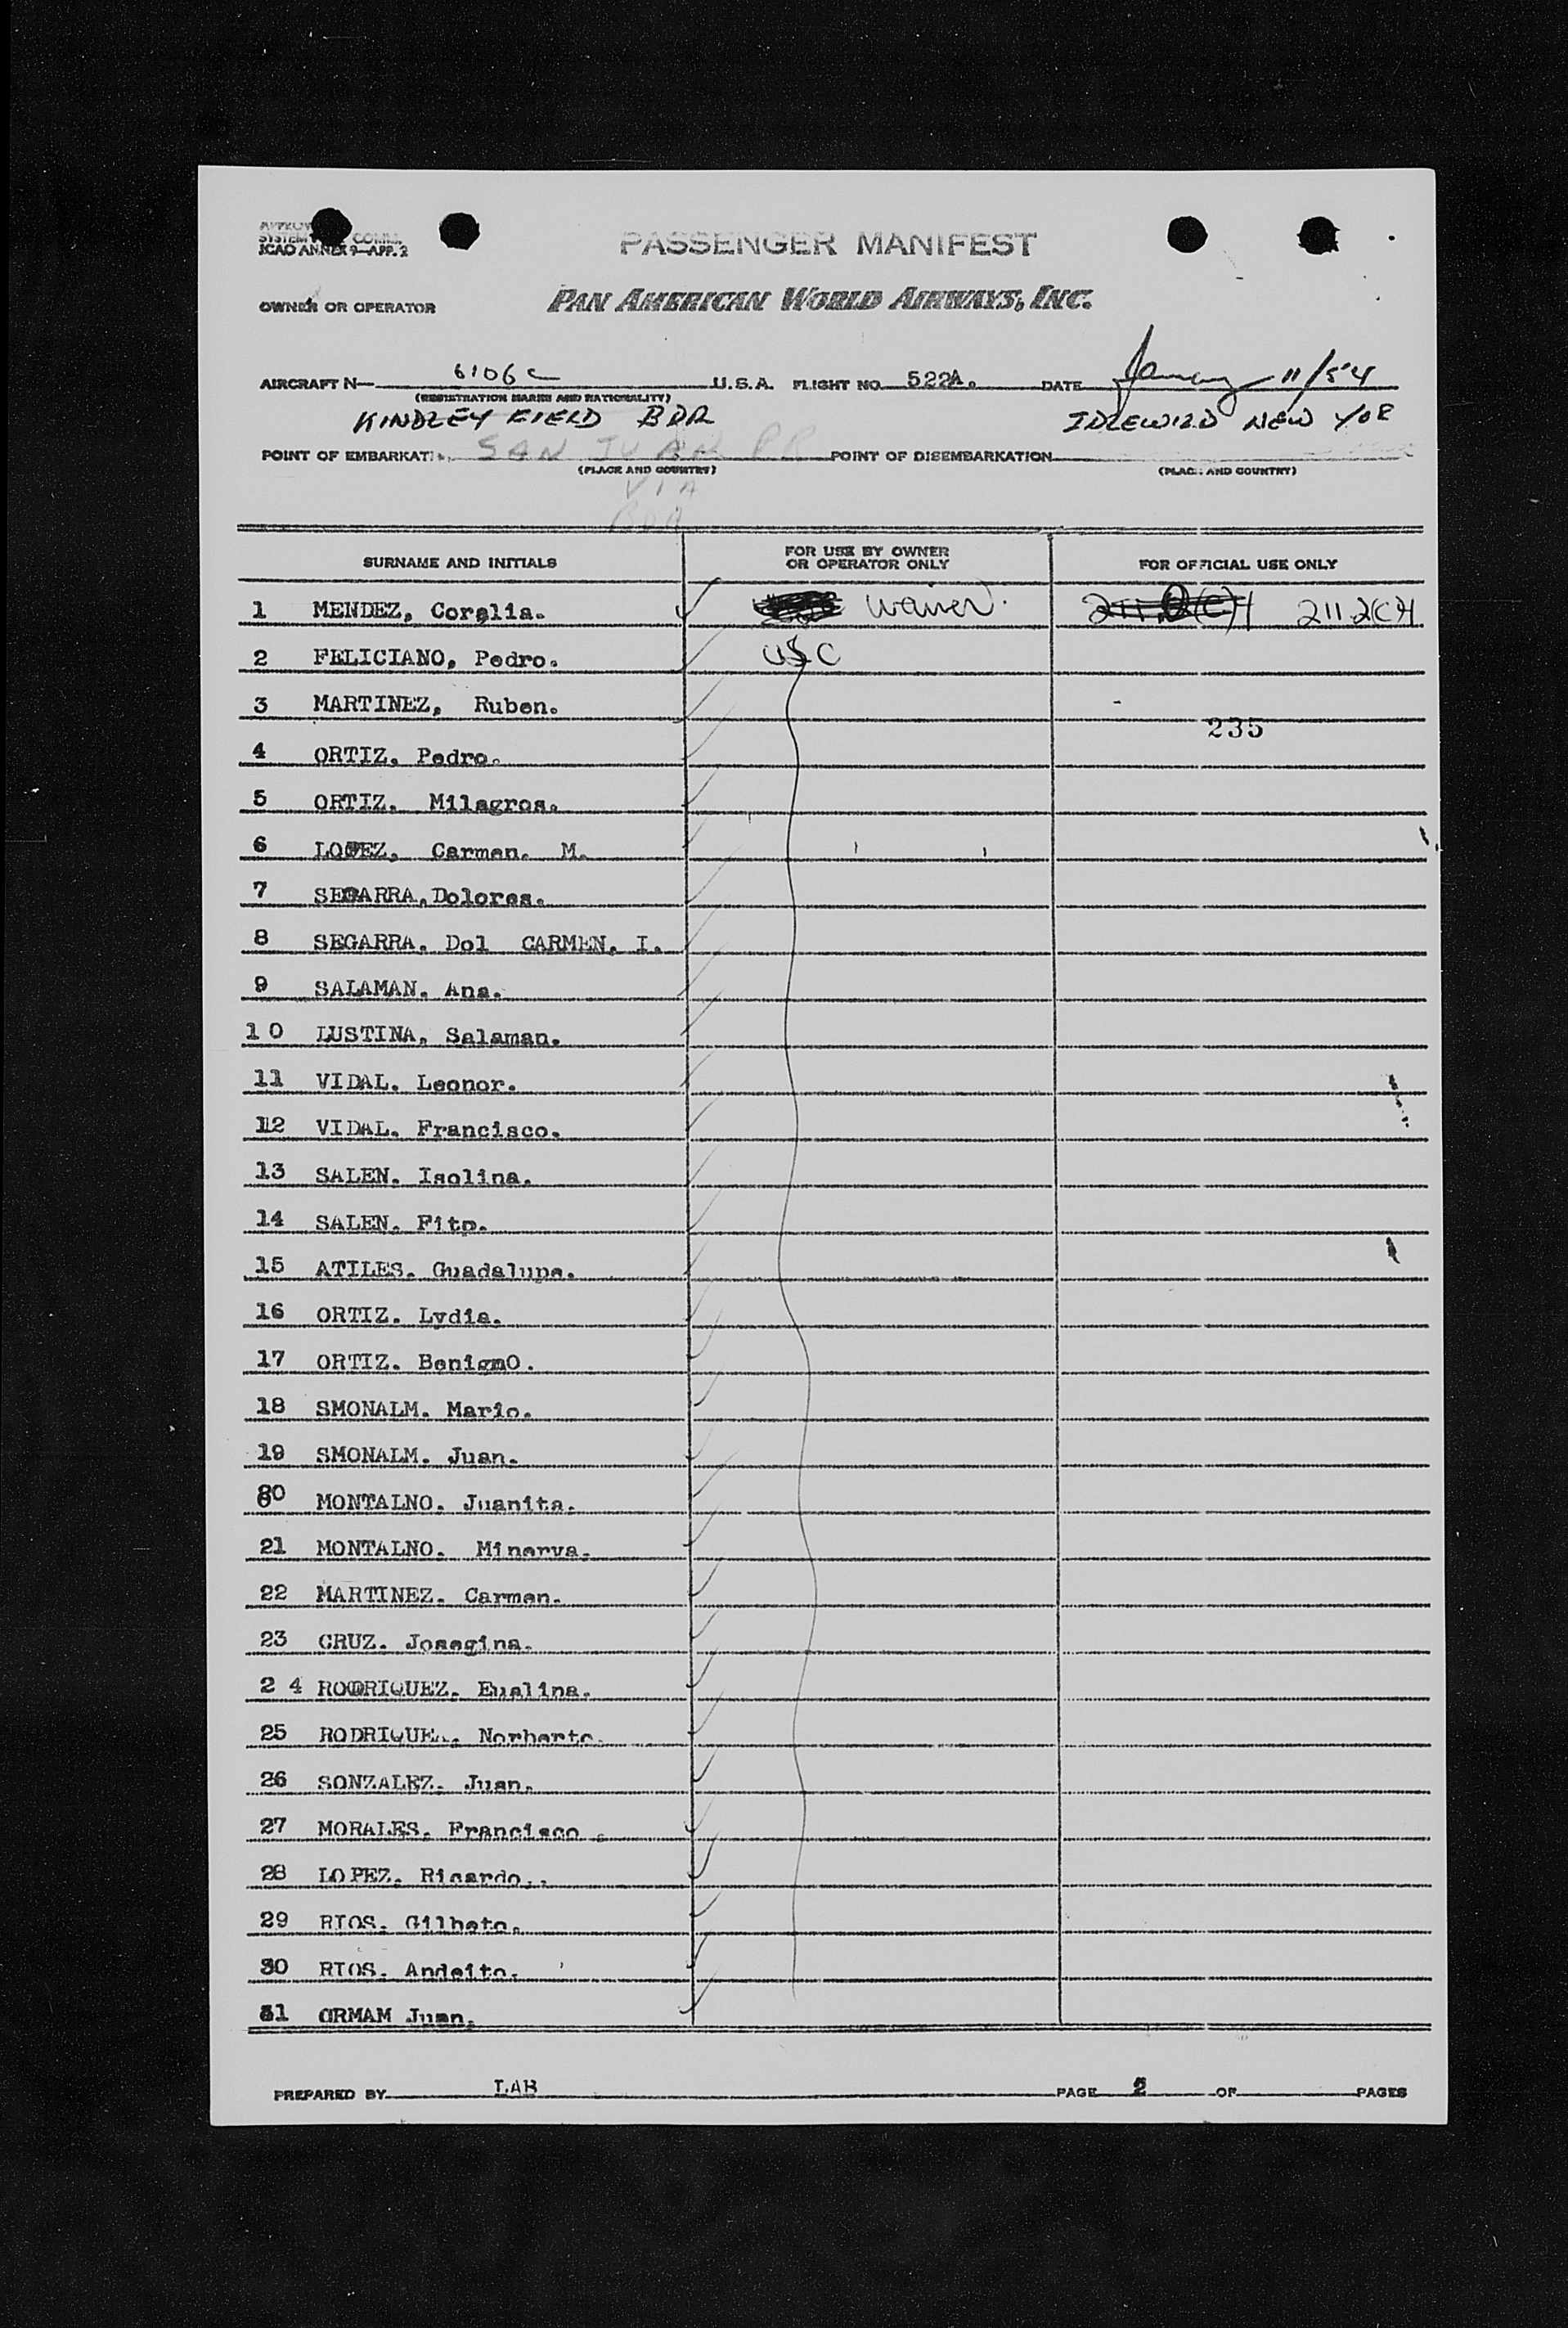 SYSTEM COMM.
ICAO ANNEX 9—APP. 2
PASSENGER MANIFEST
OWNER OR OPERATOR PAN AMERICAN WORLD AIRWAYS, INC.
AIRCRAFT N— 6106C U.S.A. FLIGHT NO. 522A. DATE January 11/54
(REGISTRATION MARKS AND NATIONALITY)
KINDLEY FIELD BDA IDLEWILD NEW YOR
POINT OF EMBARKATI SAN JUAN PR POINT OF DISEMBARKATION
(PLACE AND COUNTRY) (PLACE AND COUNTRY)
VIA
BDA
SURNAME AND INITIALS FOR USE BY OWNER OR OPERATOR ONLY FOR OFFICIAL USE ONLY
1 MENDEZ, Corelia. Waiver. 211.2(C)4 211.2(C)4
2 FELICIANO, Pedro. USC
3 MARTINEZ, Ruben.
235
4 ORTIZ, Pedro.
5 ORTIZ. Milagros.
6 LOPEZ, Carmen. M.
7 SEGARRA, Dolores.
8 SEGARRA, Dol CARMEN, I.
9 SALAMAN. Ana.
10 LUSTINA, Salaman.
11 VIDAL. Leonor.
12 VIDAL. Francisco.
13 SALEN. Isolina.
14 SALEN. Fito.
15 ATILES. Guadalupe.
16 ORTIZ. Lydia.
17 ORTIZ. BenignO.
18 SMONALM. Mario.
19 SMONALM. Juan.
80 MONTALNO. Juanita.
21 MONTALNO. Minerva.
22 MARTINEZ. Carmen.
23 CRUZ. Josegina.
2 4 RODRIQUEZ. Eualina.
25 RODRIQUEZ. Norberto.
26 SONZALEZ. Juan.
27 MORALES. Francisco.
28 LOPEZ. Ricardo..
29 RIOS. Gilbeto.
30 RIOS. Andeito.
31 ORMAM Juan.
PREPARED BY LAB PAGE 2 OF PAGES